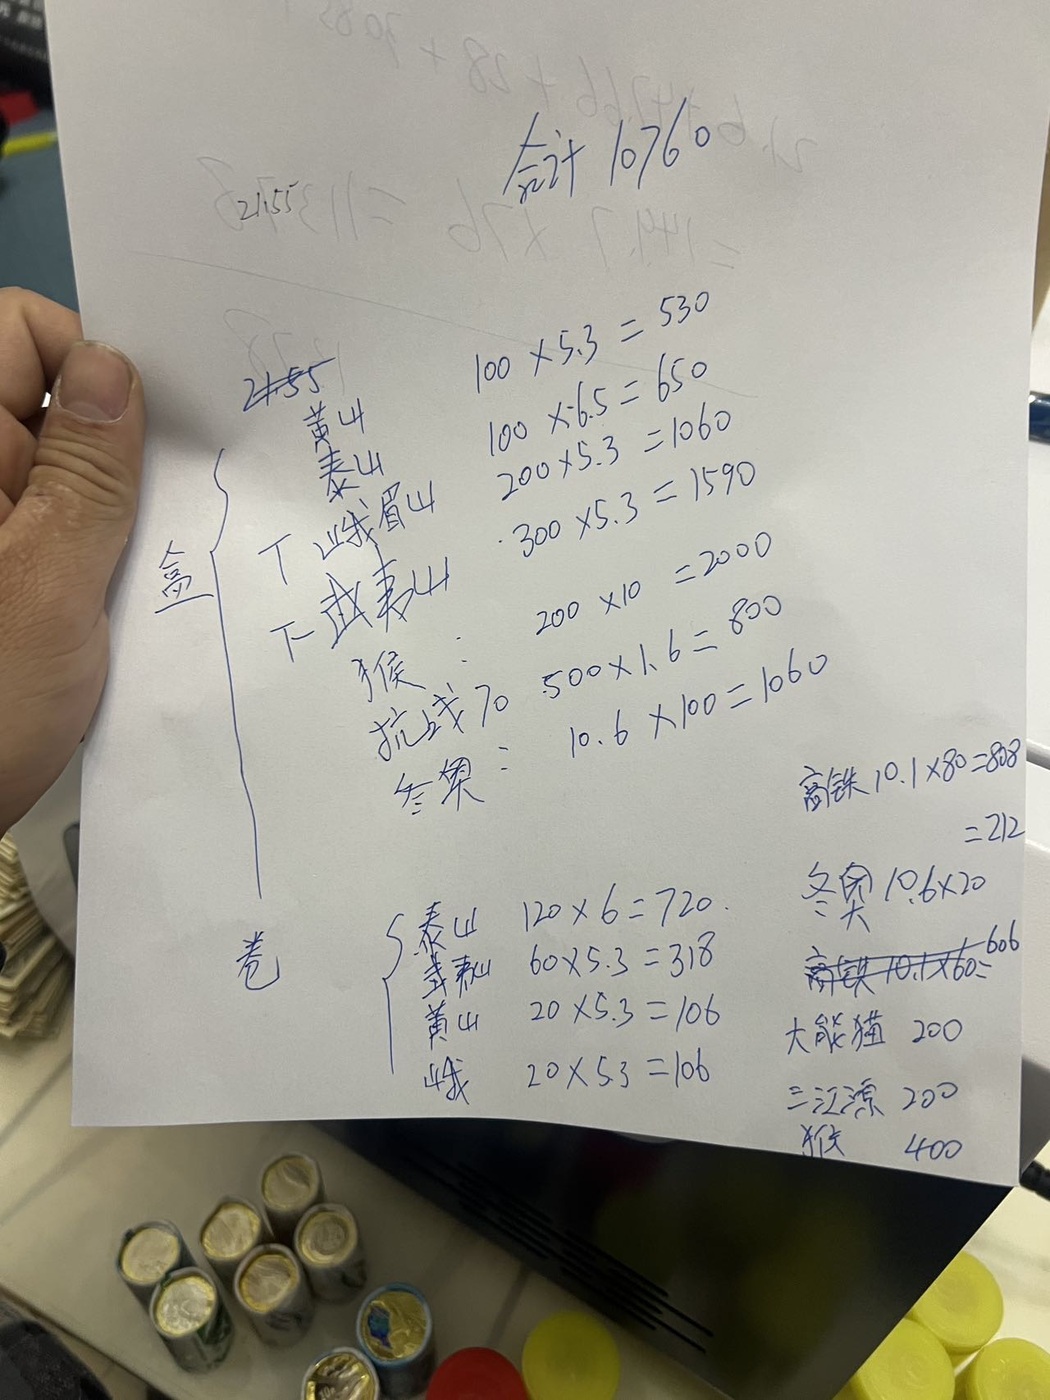 合计 10760
21.55
21.55
黄山 100×5.3=530
泰山 100×6.5=650
下 峨眉山 200×5.3=1060
下 武夷山 300×5.3=1590
猴: 200×10=2000
抗战70 500×1.6=800
冬奥: 10.6×100=1060
盒
高铁10.1×80=808
=212
冬奥10.6×20
高铁10.1×60=606
大熊猫 200
三江源 200
猴 400
卷
泰山 120×6=720
武夷山 60×5.3=318
黄山 20×5.3=106
峨 20×5.3=106